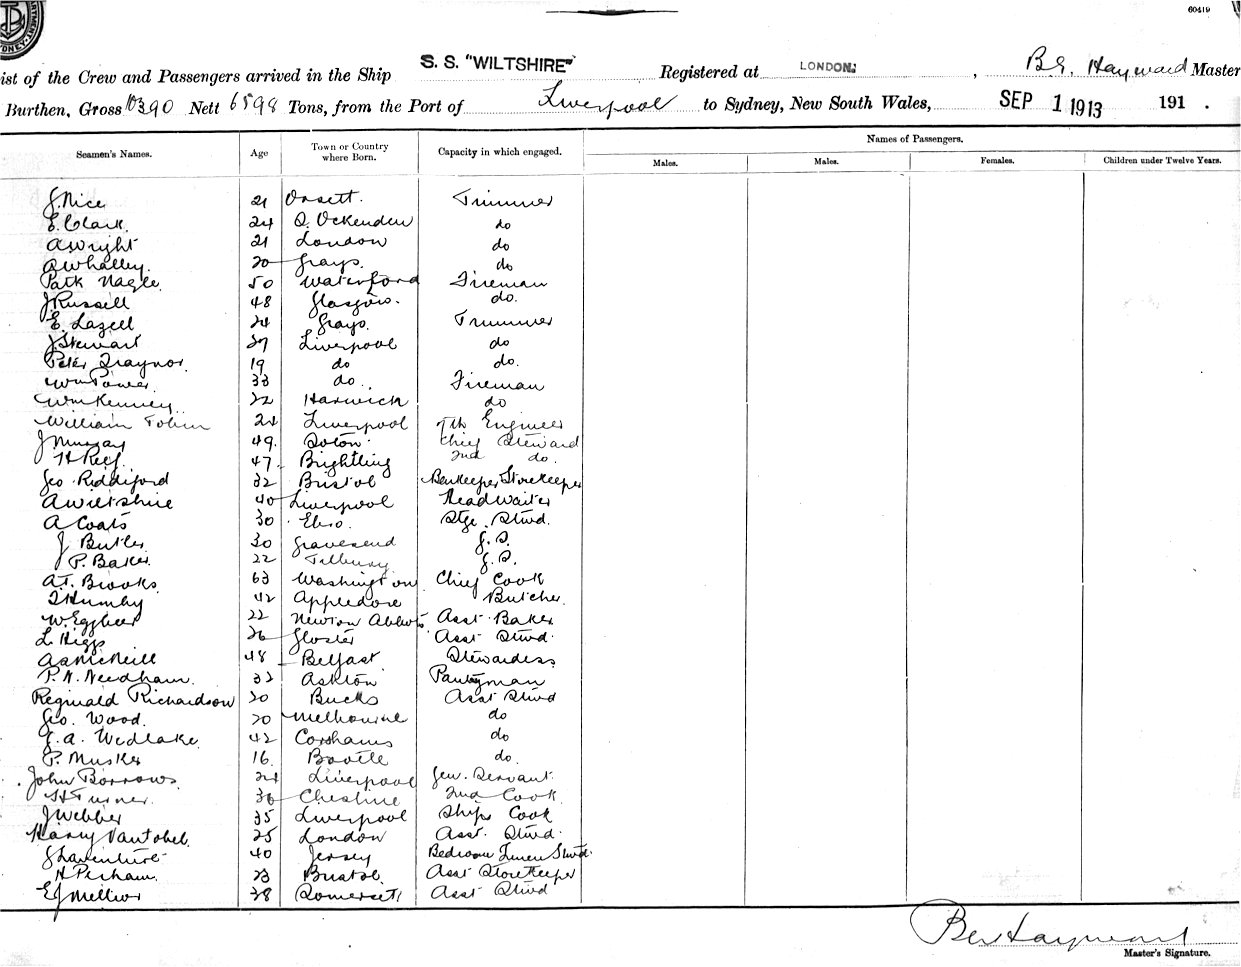 60419
ist of the Crew and Passengers arrived in the Ship S. S. "WILTSHIRE" Registered at LONDON. , B.G. Hayward Master
Burthen, Gross 10390 Nett 6598 Tons, from the Port of Liverpool to Sydney, New South Wales, SEP 1 1913 191 .
Seamen's Names. Age Town or Country where Born. Capacity in which engaged. Names of Passengers.
Males. Males. Females. Children under Twelve Years.
J. Nice 21 Orsett. Trimmer
E. Clark 24 S. Ockenden do
A Wright 21 London do
A Whalley. 20 Grays. do
Patk Nagle 50 Waterford Fireman
J Russell 48 Glasgow. do.
E. Lazell 24 Grays. Trimmer
J Stewart 27 Liverpool do
Peter Traynor. 19 do do.
Wm Power. 33 do. Fireman
Wm Kenney 22 Harwich do
William Tobin 24 Liverpool 7th Engineer
J Murray 49. Soton. Chief Steward
H Reef 47. Brightling 2nd do.
Geo Riddiford 32 Bristol Barkeeper Storekeeper
A Wiltshire 40 Liverpool Head Waiter
A Coats 30 Stge. Stwd.
J Butler 30 Gravesend G.S.
P. Baker. 22 Tilbury G.S.
A.T. Brooks. 63 Washington Chief Cook
42 Appledore Butcher.
W. 22 Newton Abbots Asst Baker
L. Higgs 26 Gloster Asst Stwd.
McNeill 48 Belfast Stewardess
P. N. Needham. 32 Ashton Pantryman
Reginald Richardson 20 Bucks Asst Stwd
Geo. Wood. 20 Melbourne do
E. A. Wedlake. 42 Corshams do
P. Musker 16. Bootle do.
John Borrows. 24 Liverpool Gen. Servant.
H Turner. 36 Cheshire 2nd Cook
J Webber 35 Liverpool Ships Cook
Harry Vantobel. 25 London Asst. Stwd.
40 Jersey Bedroom Linen Stwd.
H Perham. 23 Bristol Asst Storekeeper
38 Somerset Asst Stwd
Ben Hayward
Master's Signature.